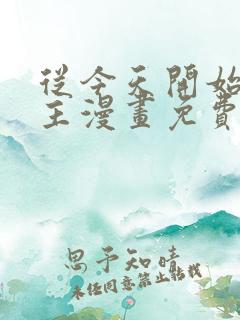 從今天開始
王漫畫免費
思予知晴
未經同意禁止轉載